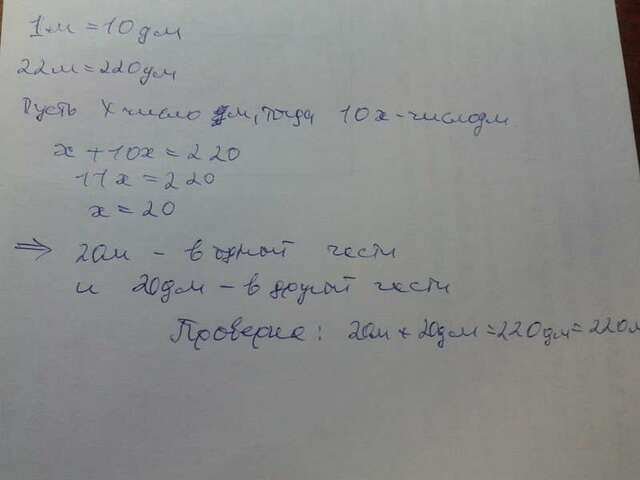 1м = 10дм
22м = 220дм
Пусть х число м, тогда 10х - число дм
х + 10х = 220
11х = 220
х = 20
⇒ 20м - в одной части
и 20дм - в другой части
Проверка: 20м + 20дм = 220дм = 220м